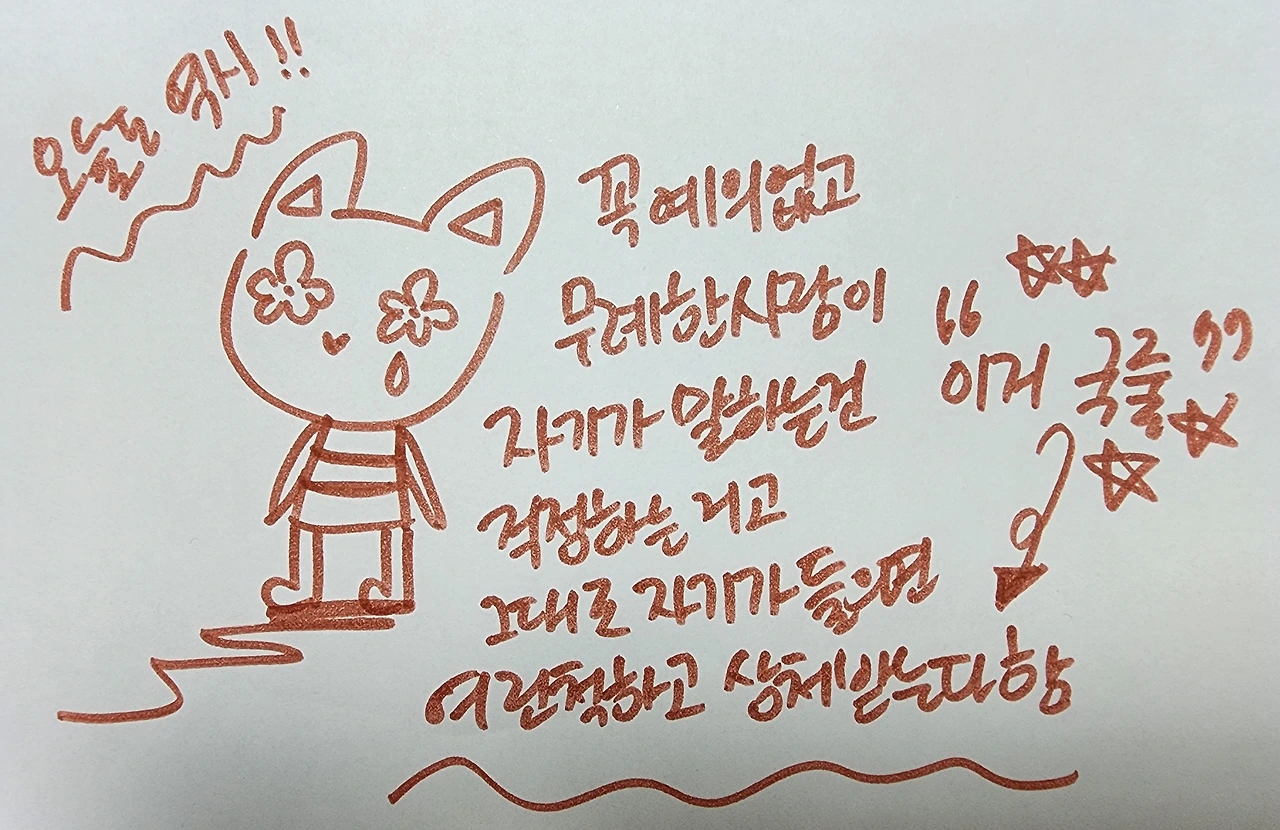 오늘 역시!!
꼭 예의없고
무례한사람이
자기가 말하는건
걱정하는 거고
그대로 자기가 들으면
여린척하고 상처받는다항
“이거 국룰”